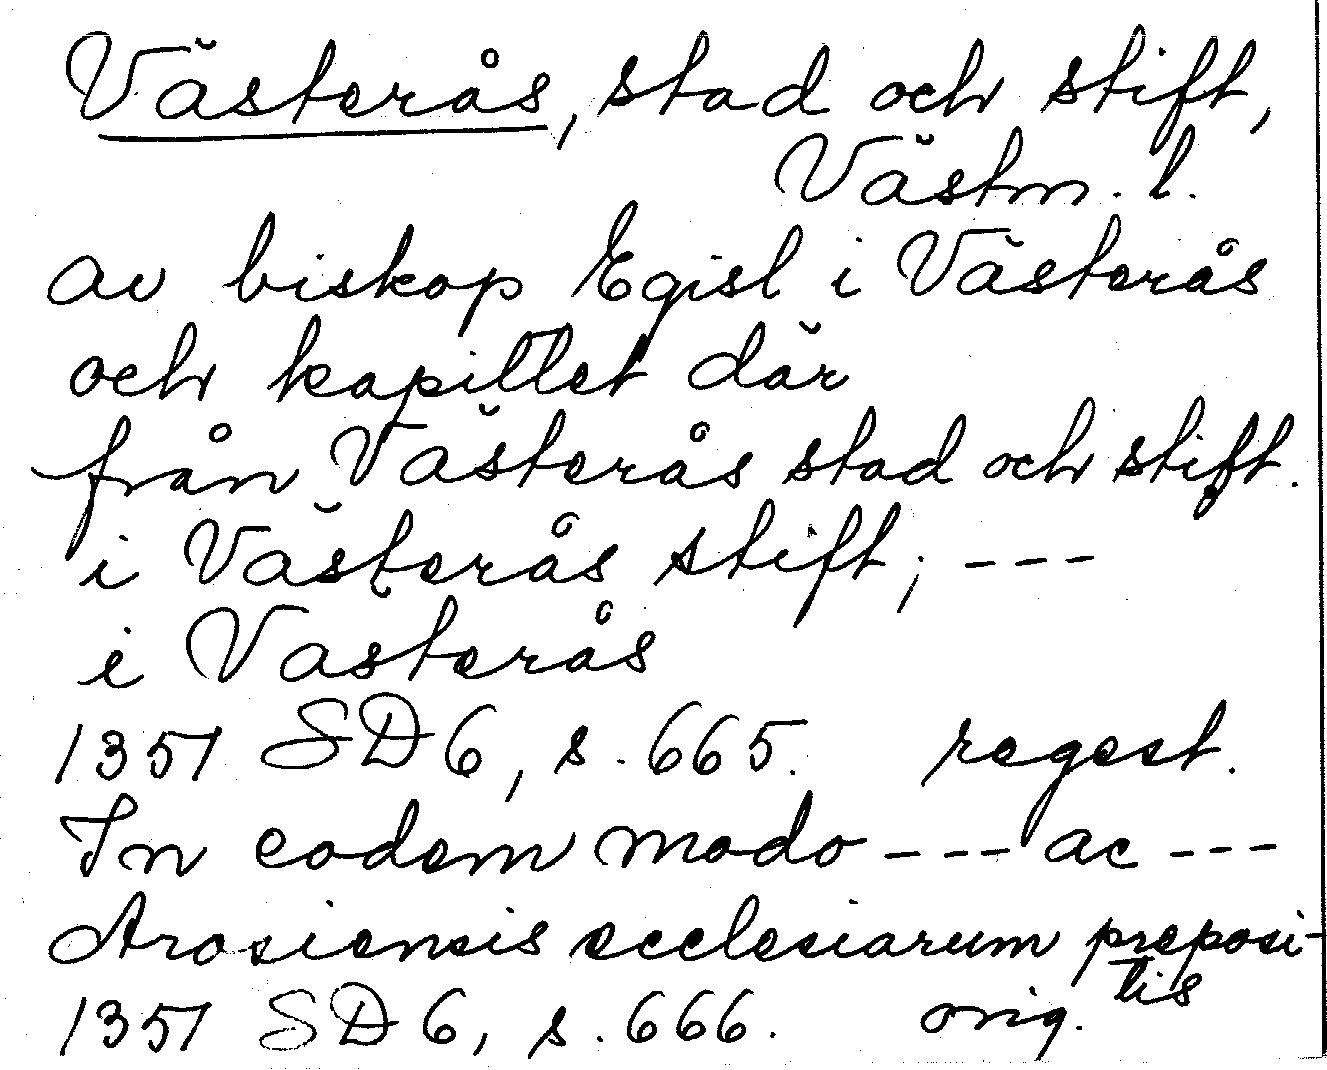 Västerås, stad och stift,
Västm. l.
av biskop Egisl i Västerås
och kapitlet där
från Västerås stad och stift.
i Västerås stift; ---
i Vasterås
1357 SD 6, s. 665. regest.
In eodem modo --- ac ---
Arosiensis ecclesiarum preposi-
tis
1357 SD 6, s. 666. orig.